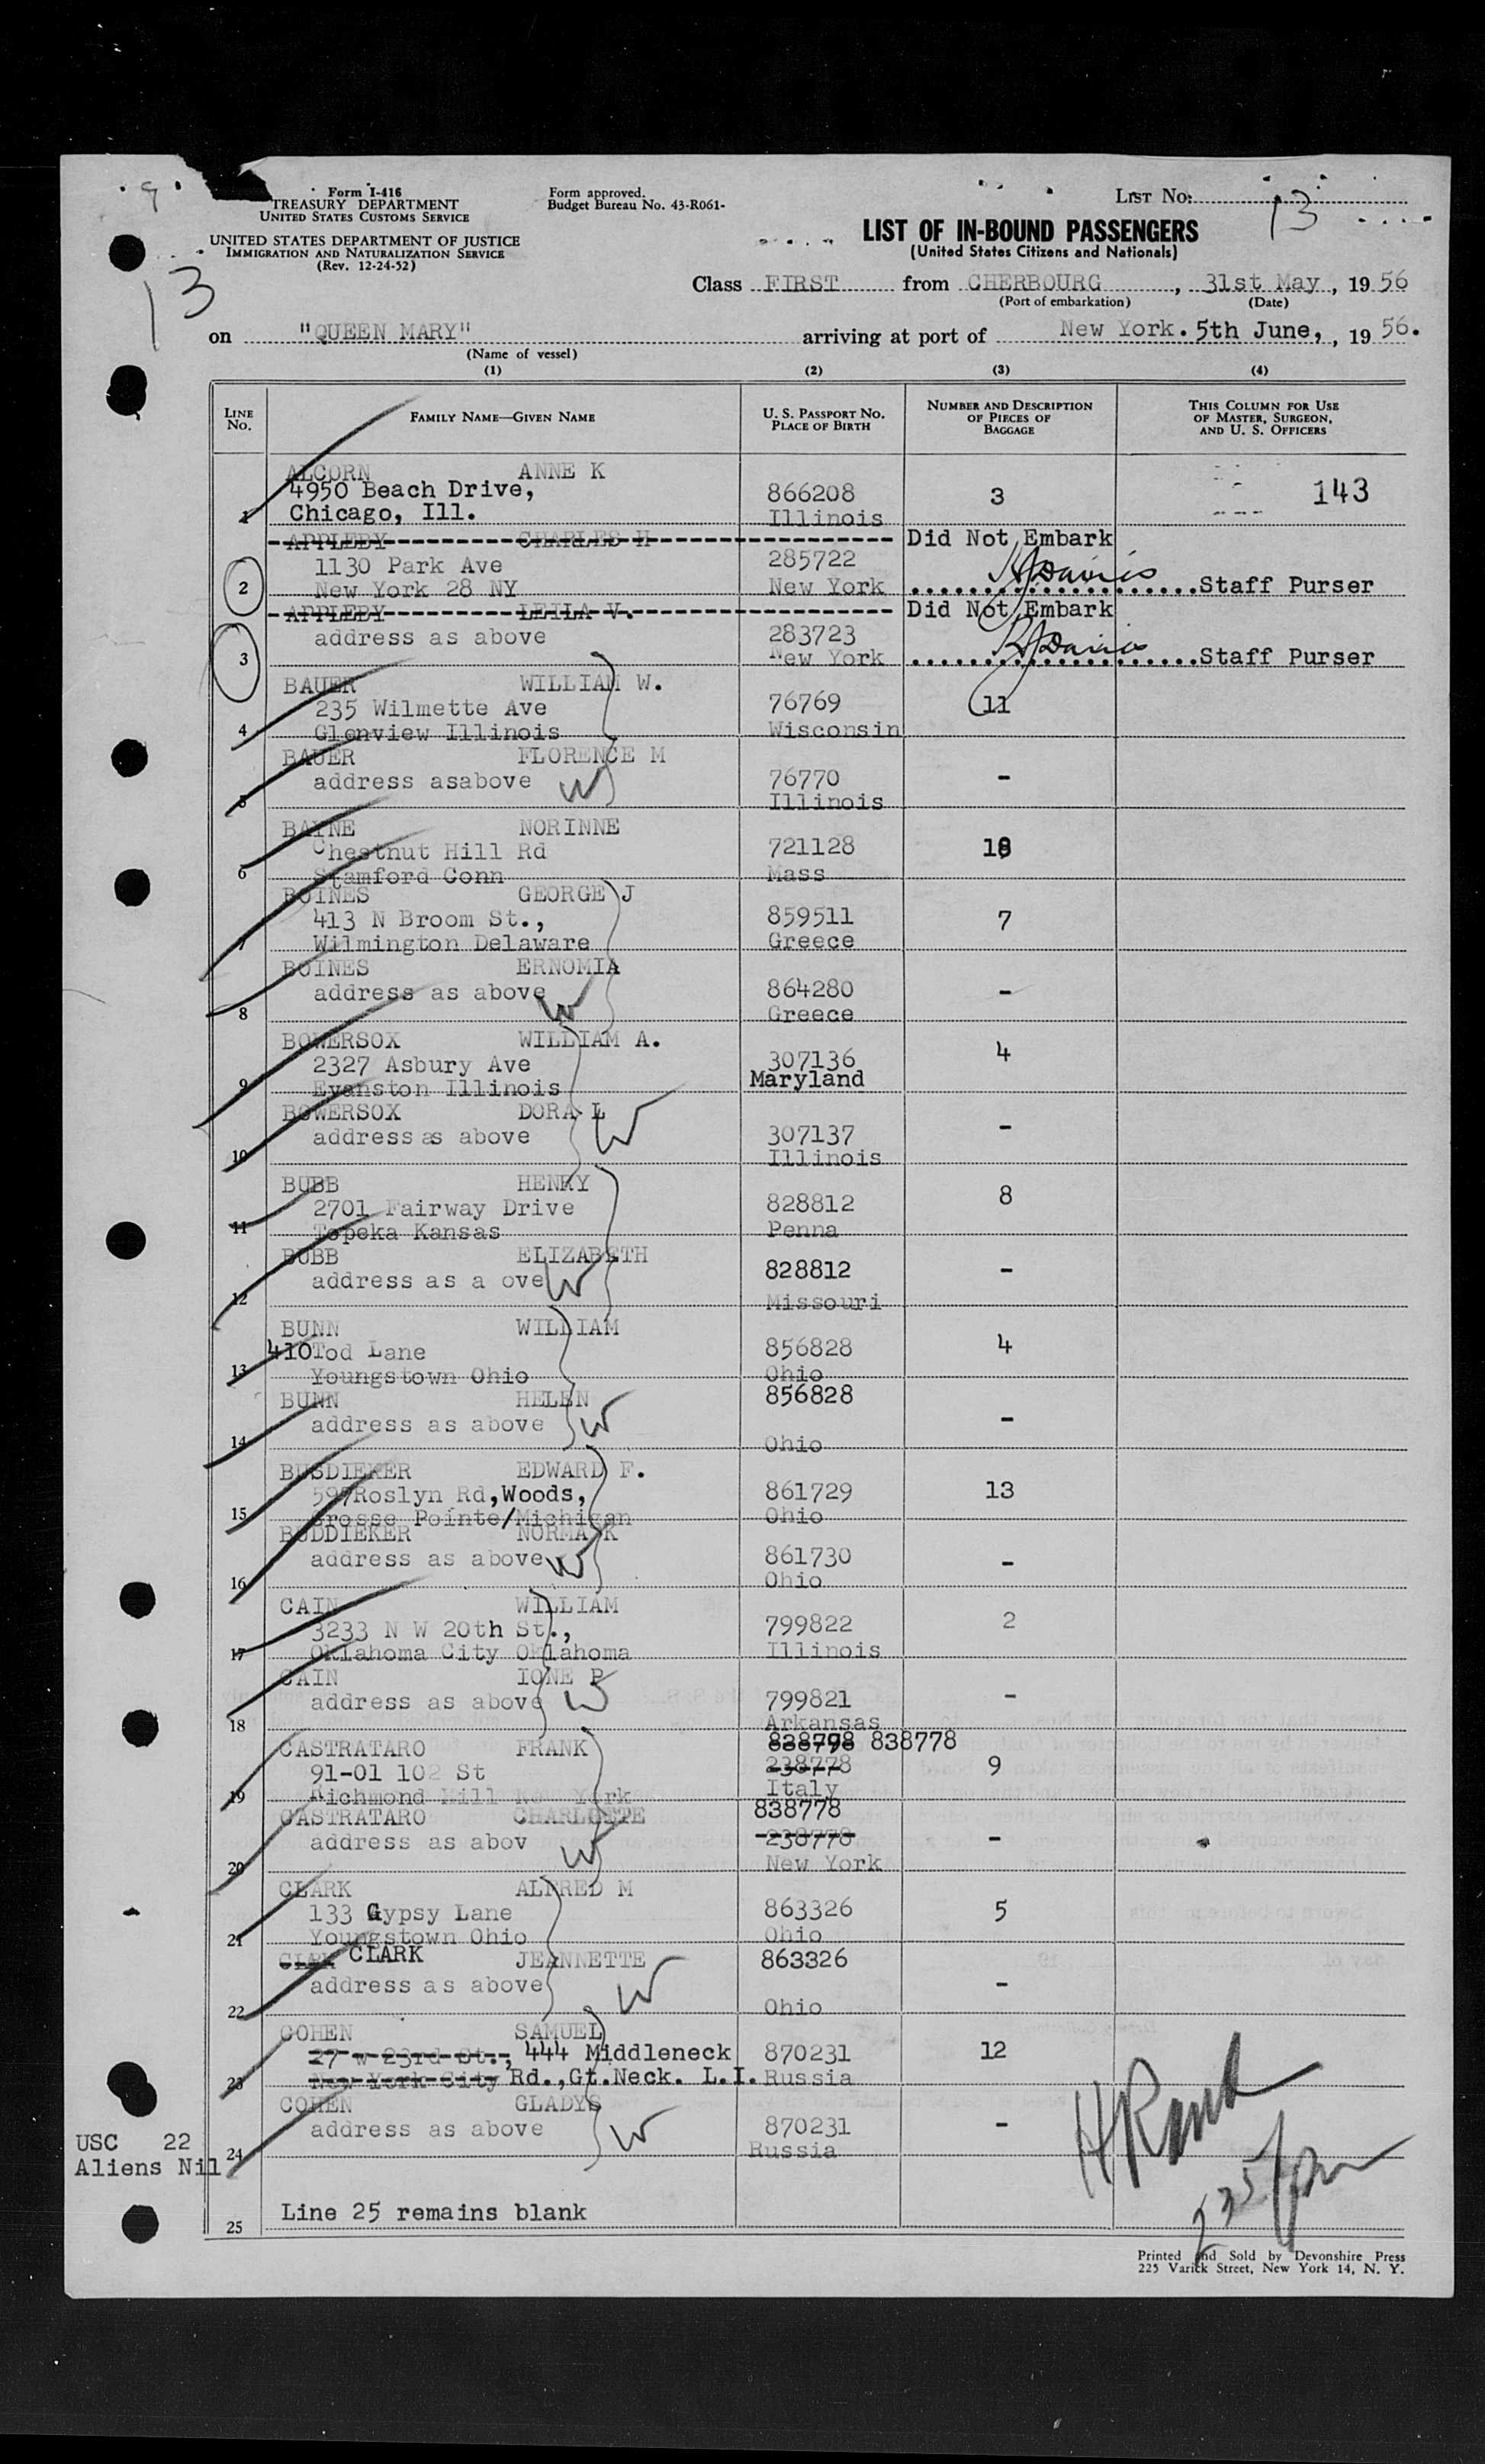 Form I-416
TREASURY DEPARTMENT
UNITED STATES CUSTOMS SERVICE
UNITED STATES DEPARTMENT OF JUSTICE
IMMIGRATION AND NATURALIZATION SERVICE
(Rev. 12-24-52)
Form approved.
Budget Bureau No. 43-R061-
LIST No. 13
13
LIST OF IN-BOUND PASSENGERS
(United States Citizens and Nationals)
Class FIRST from CHERBOURG, 31st May, 1956
(Port of embarkation) (Date)
on "QUEEN MARY" arriving at port of New York. 5th June, , 1956.
(Name of vessel)
(1) (2) (3) (4)
LINE No. FAMILY NAME—GIVEN NAME U. S. PASSPORT No. PLACE OF BIRTH NUMBER AND DESCRIPTION OF PIECES OF BAGGAGE THIS COLUMN FOR USE OF MASTER, SURGEON, AND U. S. OFFICERS
ALCORN ANNE K
4950 Beach Drive, 866208 3 143
1 Chicago, Ill. Illinois
APPLEBY CHARLES H Did Not Embark
1130 Park Ave 285722
2 New York 28 NY New York Staff Purser
APPLEBY LEILA V. Did Not Embark
address as above 283723
3 New York Staff Purser
BAUER WILLIAM W.
235 Wilmette Ave 76769 11
4 Glenview Illinois Wisconsin
BAUER FLORENCE M
address asabove W 76770 -
5 Illinois
BAYNE NORINNE
Chestnut Hill Rd 721128 18
6 Stamford Conn Mass
BOINES GEORGE J
413 N Broom St., 859511 7
7 Wilmington Delaware Greece
BOINES ERNOMIA
address as above W 864280 -
8 Greece
BOWERSOX WILLIAM A.
2327 Asbury Ave 307136 4
9 Evanston Illinois Maryland
BOWERSOX DORA L
address as above W 307137 -
10 Illinois
BUBB HENRY
2701 Fairway Drive 828812 8
11 Topeka Kansas Penna
BUBB ELIZABETH
address as a ove W 828812 -
12 Missouri
BUNN WILLIAM
410 Tod Lane 856828 4
13 Youngstown Ohio Ohio
BUNN HELEN 856828
address as above W -
14 Ohio
BUSDIEKER EDWARD F.
597 Roslyn Rd, Woods, 861729 13
15 Grosse Pointe/Michigan Ohio
BUDDIEKER NORMA K
address as above W 861730 -
16 Ohio
CAIN WILLIAM
3233 N W 20th St., 799822 2
17 Oklahoma City Oklahoma Illinois
CAIN IONE P
address as above W 799821 -
18 Arkansas
CASTRATARO FRANK 838798 838778
91-01 102 St 238778 9
19 Richmond Hill New York Italy
CASTRATARO CHARLOTTE 838778
address as abov W 238778 -
20 New York
CLARK ALFRED M
133 Gypsy Lane 863326 5
21 Youngstown Ohio Ohio
CLAK CLARK JEANNETTE 863326
address as above W -
22 Ohio
COHEN SAMUEL
27 W 23rd St., 444 Middleneck 870231 12
23 New York City Rd.,Gt.Neck. L.I. Russia
COHEN GLADYS
address as above W 870231 -
24 Russia
USC 22
Aliens Nil
25 Line 25 remains blank
Printed and Sold by Devonshire Press
225 Varick Street, New York 14, N. Y.